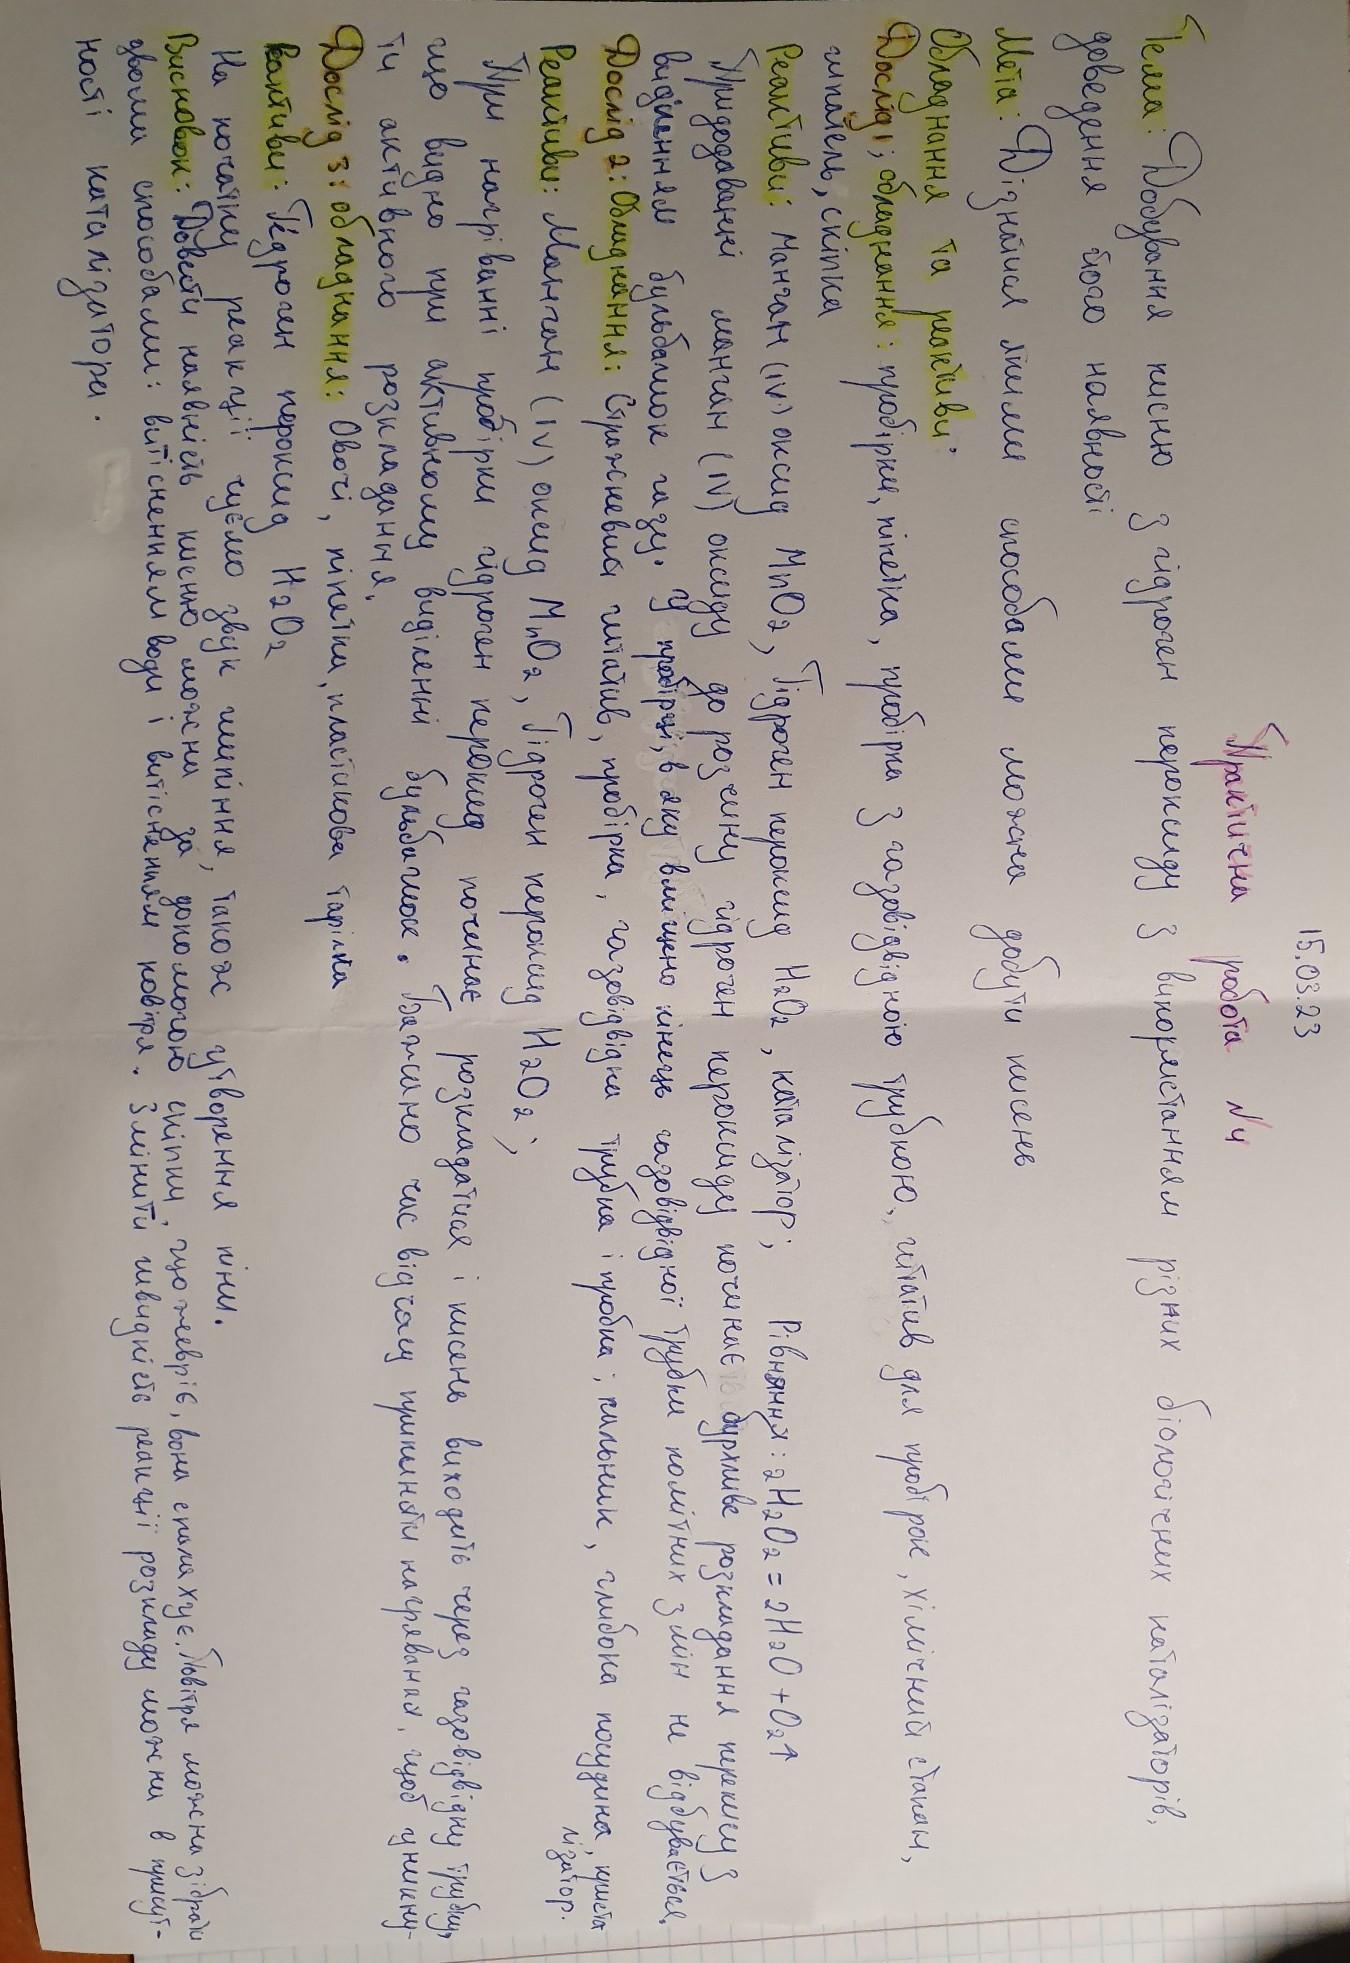 15.03.23
Практична робота №4
Тема: Добування кисню з гідроген пероксиду з використанням різних біологічних каталізаторів,
доведення його наявності
Мета: Дізнатися якими способами можна добути кисень
Обладнання та реактиви:
Дослід 1; обладнання: пробірка, піпетка, пробірка з газовідвідною трубкою, штатив для пробірок, хімічний стакан,
шпатель, скіпка
Реактиви: Манган (IV) оксид MnO2, Гідроген пероксид H2O2, каталізатор; Рівняння: 2H2O2 = 2H2O + O2↑
При додаванні манган (IV) оксиду до розчину гідроген пероксиду починає бурхливе розкладання перекису з
виділенням бульбашок газу. У пробірці, в яку вміщено кінець газовідвідної трубки помітних змін не відбувається.
Дослід 2: Обладнання: Стрижневий штатив, пробірка, газовідвідна трубка і пробка; пальник, глибока посудина, криста
лізатор.
Реактиви: Манган (IV) оксид MnO2, Гідроген пероксид H2O2;
При нагріванні пробірки гідроген пероксид починає розкладатися і кисень виходить через газовідвідну трубку,
що видно при активному виділенні бульбашок. Бажано час від часу припиняти нагрівання, щоб уникну-
ти активного розкладання.
Дослід 3: обладнання: Овочі, піпетка, пластикова тарілка
Реактиви: Гідроген пероксид H2O2
На початку реакції чуємо звук шипіння, також утворення піни.
Висновок: Довести наявність кисню можна за допомогою скіпки, що жевріє, вона спалахує. Повітря можна зібрати
двома способами: витісненням води і витісненням повітря. Змінити швидкість реакції розкладу можна в присут-
ності каталізатора.